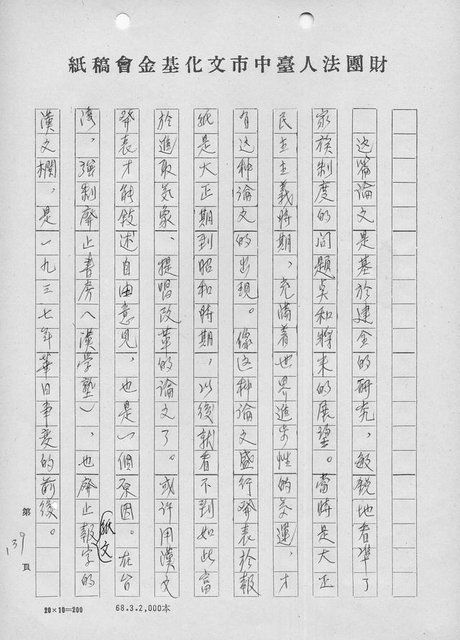 財團法人臺中市文化基金會稿紙
這篇論文是基於建全的研究，敏銳地看準了
家族制度的问題点和將來的展望。當時是大正
民主主義時期，充滿着世界進步性的氣運，才
有这种論文的出現。像这种論文盛行發表於報
紙是大正期到昭和時期，以後就看不到如此富
於進取気象、提唱改革的論文了。或许用漢文
發表才能敘述自由意見，也是一個原因。在台
湾，強制廢止書房（漢学塾），也廢止報紙文字的
漢文欄，是一九三七年華日事变的前後。
第139頁
20×10=200
68.3.2,000本